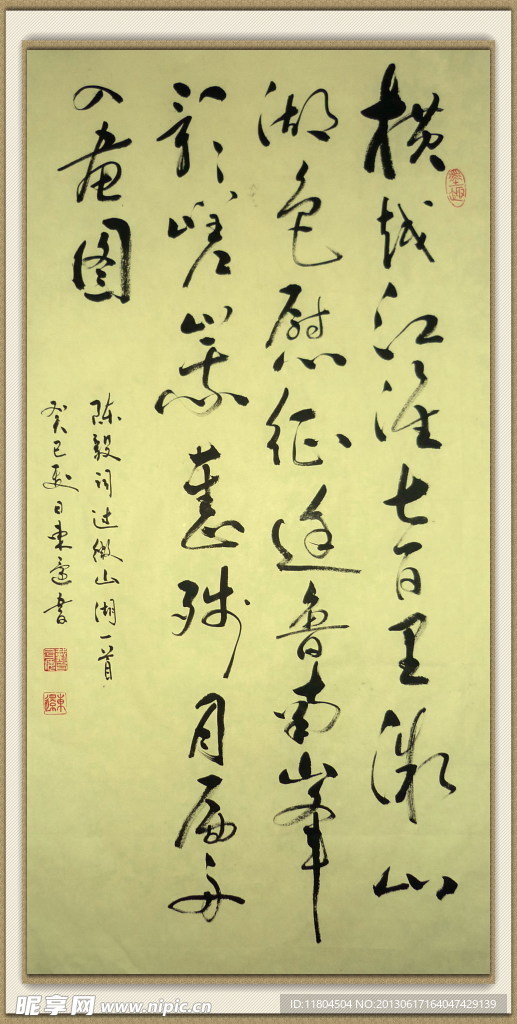 横越江淮七百里微山
湖色慰征途鲁南峰
影嵯峩甚残月扁舟
入画图
陈毅词过微山湖一首
癸巳夏日东书
昵享网 www.nipic.cn
ID:11804504 NO:20130617164047429139